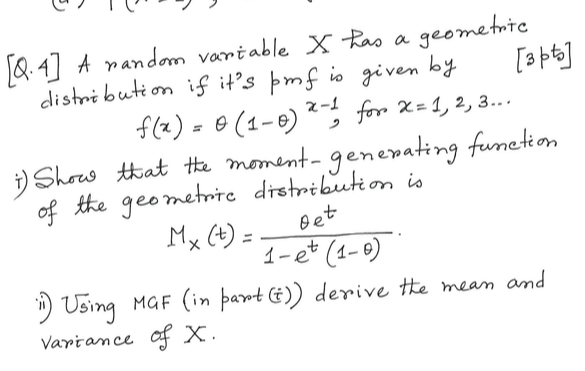 [Q.4] A random variable X has a geometric
distribution if it's pmf is given by [3 pts]
f(x) = θ (1-θ)^{x-1}, for x = 1, 2, 3...
i) Show that the moment-generating function
of the geometric distribution is
M_X (t) = θe^t / (1 - e^t (1-θ)) .
ii) Using MGF (in part (i)) derive the mean and
Variance of X.